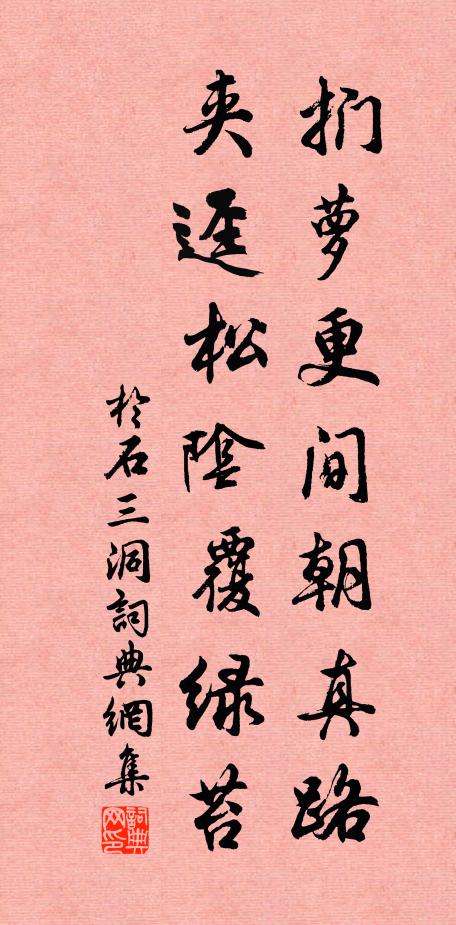 捫萝更间朝真路
夹迳松陰覆绿苔
於石三洞詞典網集
詞典网印